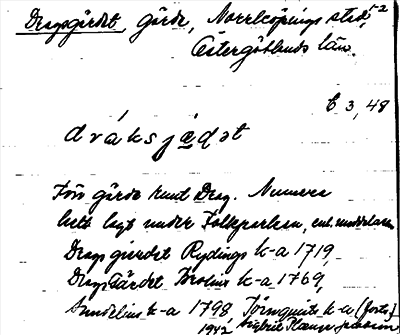 Dragsgärdet, gärde, Norrköpings stad, 52
Östergötlands län.
E. 3, 48
dváksjædət
Förr gärde runt Drag. Numera
helt lagt under Folkparken, enl. meddelaren
Dragsgierdet Rydings k-a 1719,
Dragsgärdet Brolins k-a 1769,
Sundelius k-a 1798, Törnquists k-a (forts.)
1942